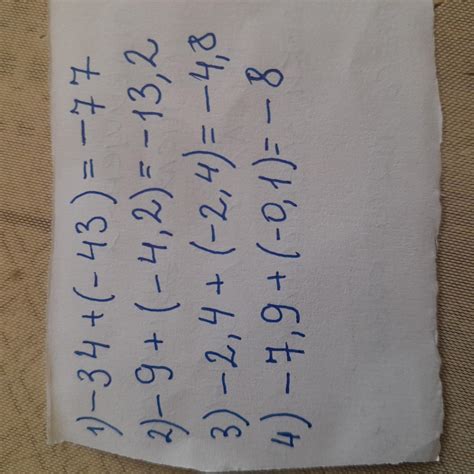 1) -34 + (-43) = -77
2) -9 + (-4,2) = -13,2
3) -2,4 + (-2,4) = -4,8
4) -7,9 + (-0,1) = -8